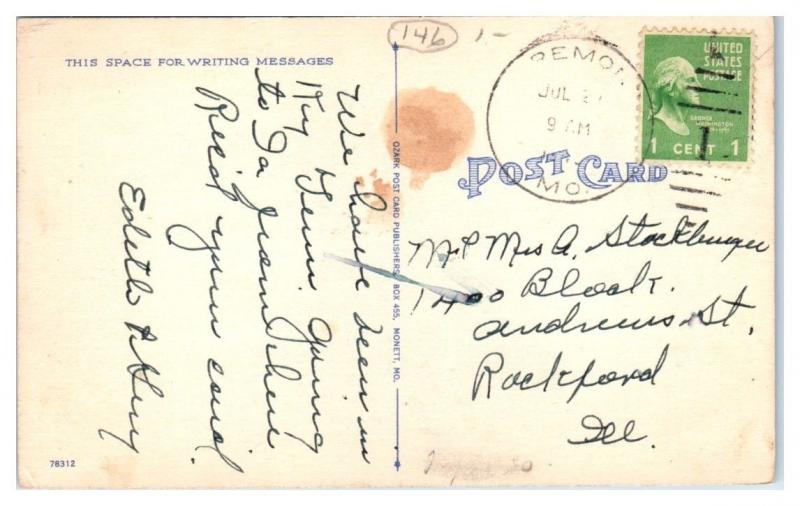 146 1-
THIS SPACE FOR WRITING MESSAGES
We have been in
Ky Tenn. Going
to Ia from here
Rec'd your card.
Edith & Guy
78312
OZARK POST CARD PUBLISHERS, BOX 455, MONETT, MO.
POST CARD
JUL
9 AM
MO.
UNITED
STATES
POSTAGE
GEORGE
WASHINGTON
1 CENT 1
Mr & Mrs A. Stockburger
1400 Block.
Andrews St.
Rockford
Ill.